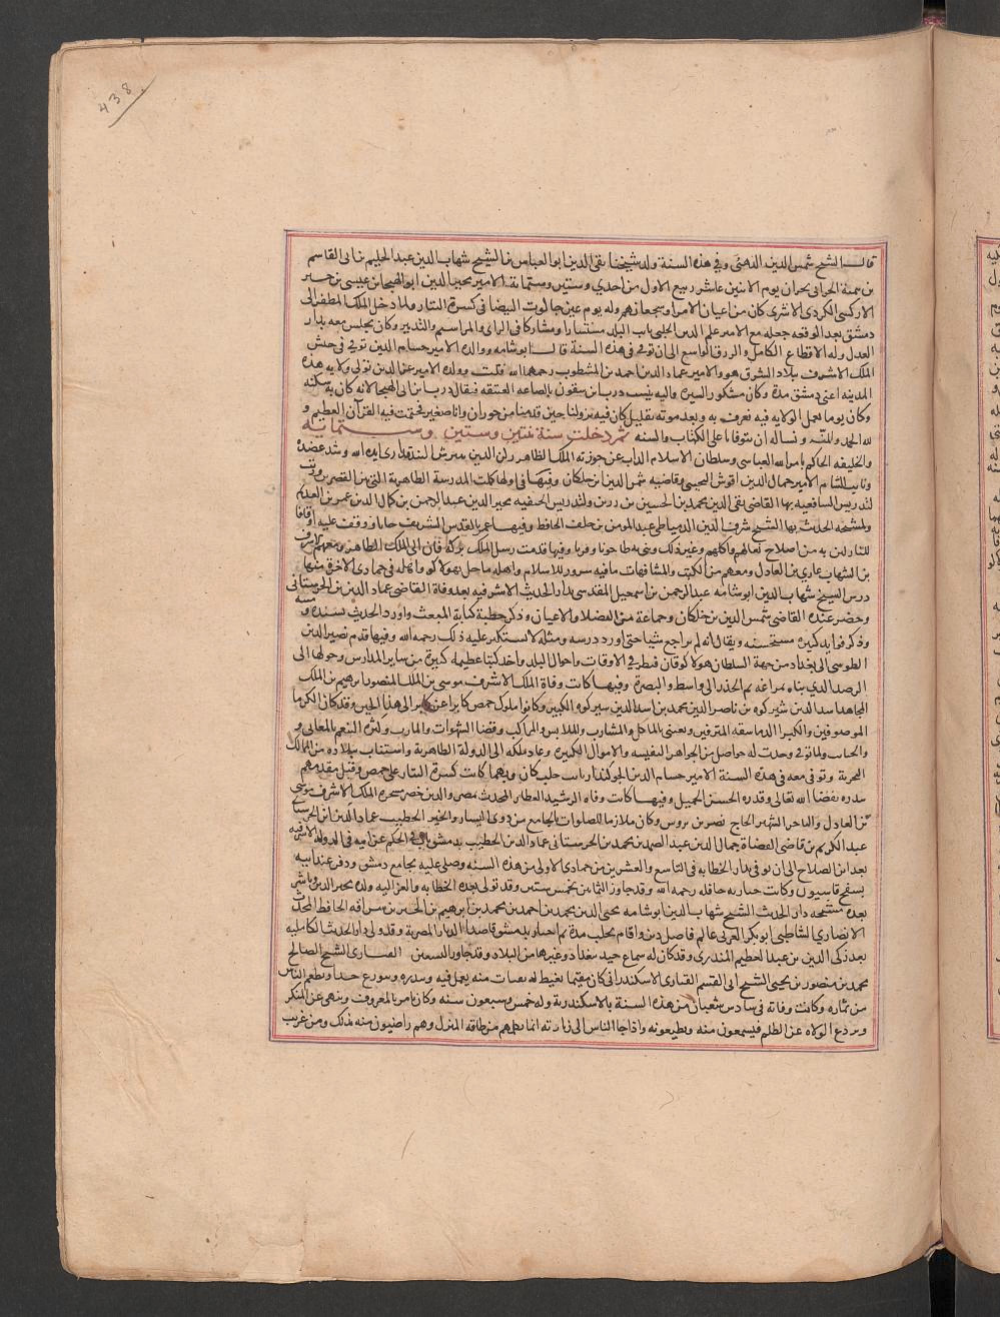 438
قال الشيخ شمس الدين الذهبي وفي هذه السنة ولد شيخنا تقي الدين ابو العباس بن الشيخ شهاب الدين عبد الحليم بن ابي القاسم
بن تيمية الحراني بحران يوم الاثنين عاشر ربيع الاول من احدي وستين وستمائة الامير مجير الدين ابو الهيجا بن عيسى بن
الازكشي الكردي الاشرفي كان من اعيان الامرا وشجعانهم وله يوم عين جالوت اليد البيضا في كسرة التتار ولما دخل الملك المظفر الى
دمشق بعد الوقعه جعله مع الامير علم الدين الحلبي نايب البلد مستشارا ومشاركا في الراى والمراسم والتدبير وكان يجلس معه بدار
العدل وله الاقطاع الكامل والرزق الواسع الى ان توفي في هذه السنة قال ابو شامه ووالده الامير حسام الدين توفي في حبس
الملك الاشرف ببلاد الشرق هو والامير عماد الدين احمد بن المشطوب رحمهما الله قلت وولده الامير عز الدين تولى ولاية هذه
المدينه اعنى دمشق مدة وكان مشكور السيرة واليه ينسب درب ابن سنقون بالصاغه العتيقه فيقال درب ابن ابي الهيجا لانه كان يسكنه
وكان يوما يعمل الولايه فيه فعرف به وبعد موته بقليل كان فيه نزولنا حين قدمنا من حوران وانا صغير فختمت فيه القرآن العظيم و
لله الحمد والمنه ونساله ان يتوفانا على الكتاب والسنه ثم دخلت سنة ثنتين وستين وستمايه
والخليفه الحاكم بامر الله العباسي وسلطان الاسلام الملك الظاهر ركن الدين بيبرس البندقداري ايده الله وشد عضده
ونايب الشام الامير جمال الدين اقوش النجيبي وقاضيه شمس الدين ابن خلكان وفيها في اولها كملت المدرسة الظاهرية التي بين القصرين ورتب
لتدريس الشافعيه بها القاضي تقي الدين محمد بن الحسين بن رزين ولتدريس الحنفيه مجير الدين عبد الرحمن بن كمال الدين عمر بن العديم
ولمشيخه الحديث بها الشيخ شرف الدين الدمياطي عبد المومن بن خلف الحافظ وفيها عمر بالقدس الشريف خانا ووقف عليه اوقافا
للنازلين به من اصلاح نعالهم واكلهم وغير ذلك وبنى به طاحونا وفرنا وفيها قدمت رسل الملك بركه قان الى الملك الظاهر ومعهم الاشرف
بن الشهاب غازي بن العادل ومعهم من الكتب والمشافهات ما فيه سرور للاسلام واهله مما حل بهولاكو واهله في جمادى الاخرة منها
درس الشيخ شهاب الدين ابو شامه عبد الرحمن بن اسمعيل المقدسي بدار الحديث الاشرفيه بعد وفاة القاضي عماد الدين بن الحرستاني
وحضر عنده القاضي شمس الدين بن خلكان وجماعة من الفضلا والاعيان وذكر خطبة كتابه المبعث واورد الحديث بسنده ومتنه
وذكر فوايد كثيره مستحسنه ويقال انه لم يراجع شيا حتى اورد درسه ومثله لا يستكثر عليه ذلك رحمه الله وفيها قدم نصير الدين
الطوسي الى بغداد من جهة السلطان هولاكو قان فنظر في الاوقات واحوال البلد واخذ كتبا عظيمه كثيرة من ساير المدارس وحولها الى
الرصد الذي بناه بمراغه ثم انحدر الى واسط والبصرة وفيها كانت وفاة الملك الاشرف موسى بن الملك المنصور ابرهيم بن الملك
المجاهد اسد الدين شيركوه بن ناصر الدين محمد بن اسد الدين شيركوه الكبير وكانوا ملوك حمص كابرا عن كابر الى هذا الحين وقد كان من الكرما
الموصوفين والكبرا الدماشقه المترفين ويعتنى بالماكل والمشارب والملابس والمراكب وقضا الشهوات والمارب وكثرة التنعم بالمغاني و
والحباب ولما توفي وجدت له حواصل من الجواهر النفيسه والاموال الكثيرة وعاد ملكه الى الدولة الظاهرية واستناب ببلاده من المماليك
البحرية وتوفي معه في هذه السنة الامير حسام الدين الجوكندار نايب حلب كان وبهما كانت كسرة التتار على حمص وقتل مقدمهم
بيدره بقضا الله تعالى وقدره الحسن الجميل وفيها كانت وفاه الرشيد العطار المحدث بمصر والذي حضر مسخره الملك الاشرف موسى
بن العادل والتاجر الشهير الحاج نصر بن بروس وكان ملازما للصلوات بالجامع من ذوي اليسار والخير الخطيب عماد الدين ابن الحرستاني
عبد الكريم بن قاضي القضاة جمال الدين عبد الصمد بن محمد بن الحرستاني عماد الدين الخطيب بدمشق ناب في الحكم عن ابيه في الدولة الاشرفيه
بعد ابن الصلاح الى ان توفي بدار الخطابه في التاسع والعشرين من جمادى الاولى من هذه السنه وصلي عليه بجامع دمشق ودفن عند ابيه
بسفح قاسيون وكانت جنازته حافله رحمه الله وقد جاوز الثمانين بخمس سنين وقد تولى بعده الخطابه والغزاليه ولده مجير الدين وباشر
بعده مشيخه دار الحديث الشيخ شهاب الدين ابو شامه محيي الدين محمد بن احمد بن محمد بن ابرهيم بن الحسين بن سراقه الحافظ المحدث
الانصاري الشاطبي ابو بكر المغربي عالم فاضل دين واقام بحلب مدة ثم اجتاز بدمشق قاصدا الديار المصرية وقد ولي دار الحديث الكامليه
بعد زكي الدين بن عبد العظيم المنذري وقد كان له سماع جيد ببغداد وغيرها من البلاد وقد جاوز السبعين القباري الشيخ الصالح
محمد بن منصور بن يحيى الشيخ ابي القسم القباري الاسكندراني كان مقيما بغيط له يقتات منه يعمل فيه ويبذره ويتورع جدا ويطعم الناس
من ثماره وكانت وفاته في سادس شعبان من هذه السنة بالاسكندرية وله خمس وسبعون سنه وكان يامر بالمعروف وينهى عن المنكر
ويردع الولاه عن الظلم فيسمعون منه ويطيعونه واذا جا الناس الى زيارته انما يكلمهم من طاقه المنزل وهم راضيون منه بذلك ومن غريب